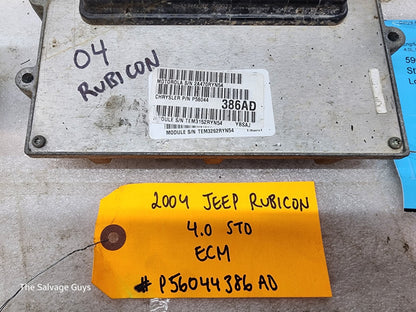 04
RUBICON
MOTOROLA S/N 2A47GRYN5A
CHRYSLER P/N P56044
386AD
MODULE S/N TEM3152RYN54
YBSAJ
MODULE S/N TEM3262RYN54
59
St
Lo
2004 JEEP RUBICON
4.0 STD
ECM
# P56044386AD
The Salvage Guys